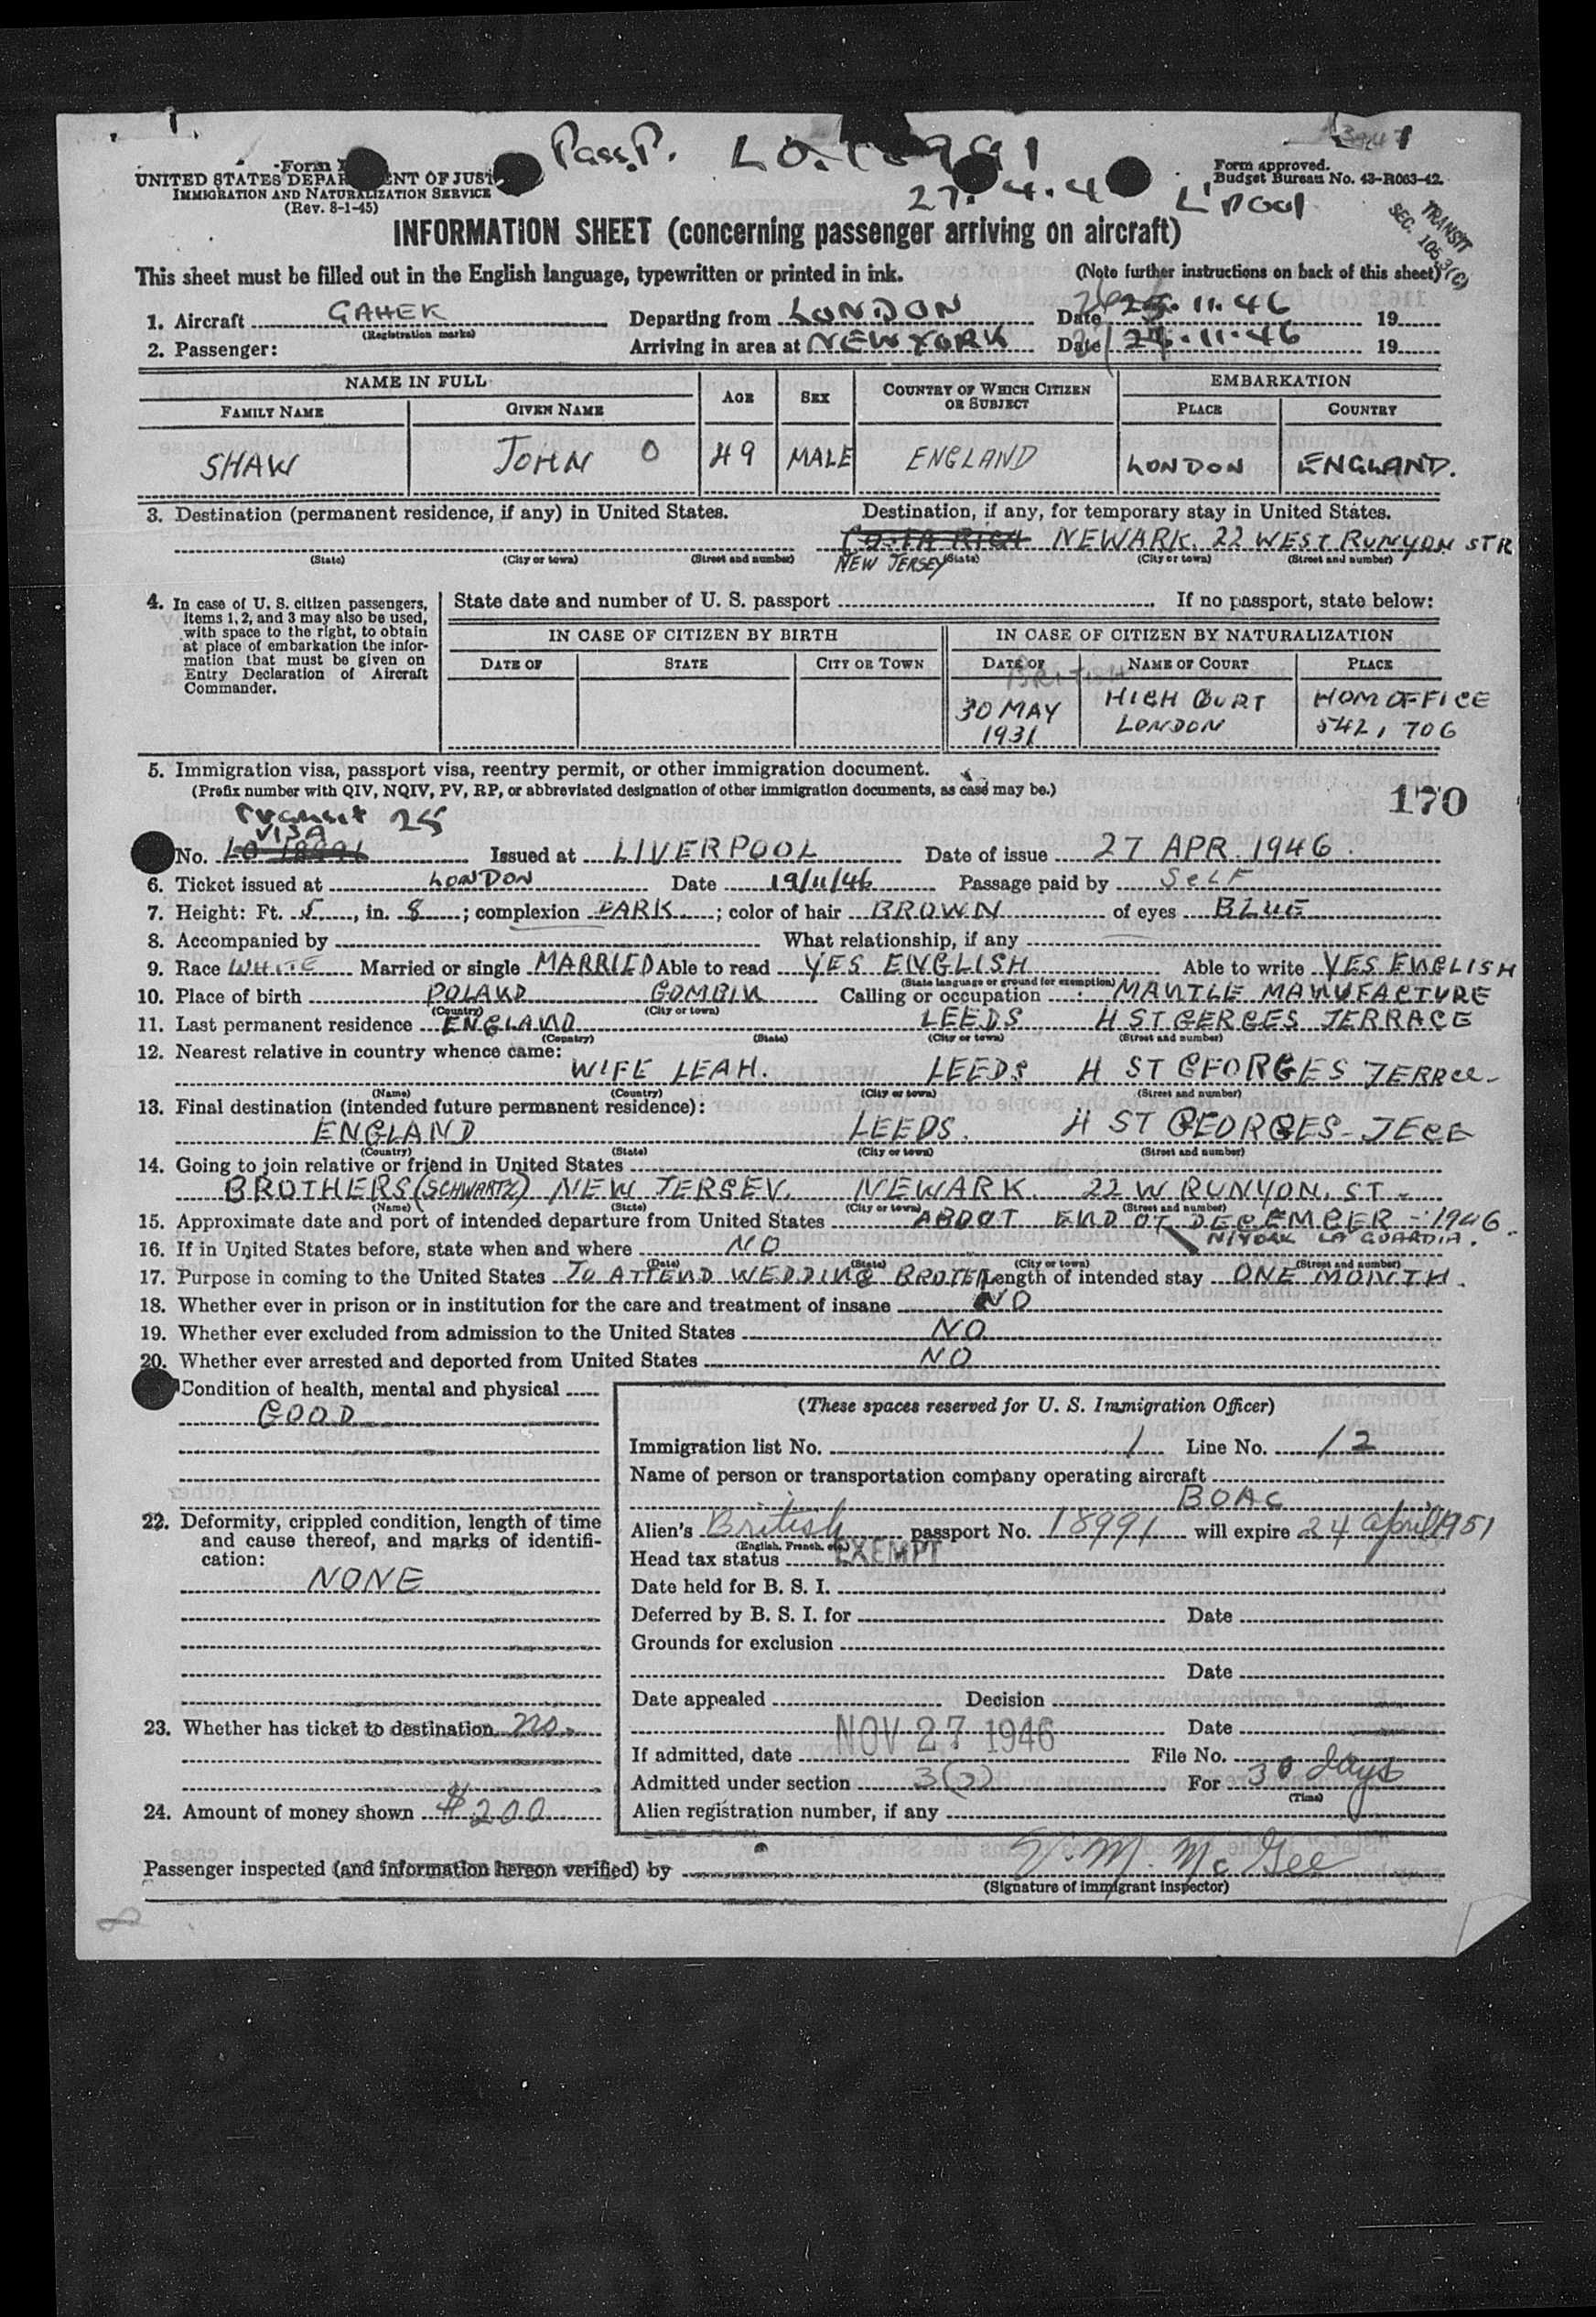 Pass.P. LO. 18991
27.4.4 L'POOL
Form
UNITED STATES DEPAR ENT OF JUST
IMMIGRATION AND NATURALIZATION SERVICE
(Rev. 8-1-45)
Form approved.
Budget Bureau No. 43-R063-42.
TRANSIT
SEC. 105.3(C)
INFORMATION SHEET (concerning passenger arriving on aircraft)
This sheet must be filled out in the English language, typewritten or printed in ink. (Note further instructions on back of this sheet)
1. Aircraft GAHEK Departing from LONDON Date 11.46 19
(Registration marks)
2. Passenger: Arriving in area at NEW YORK Date 11.46 19
NAME IN FULL AGE SEX COUNTRY OF WHICH CITIZEN OR SUBJECT EMBARKATION
FAMILY NAME GIVEN NAME PLACE COUNTRY
SHAW JOHN O 49 MALE ENGLAND LONDON ENGLAND.
3. Destination (permanent residence, if any) in United States. Destination, if any, for temporary stay in United States.
COSTA RICA NEWARK. 22 WEST RUNYON STR
(State) (City or town) (Street and number) NEW JERSEY (State) (City or town) (Street and number)
4. In case of U. S. citizen passengers, items 1, 2, and 3 may also be used, with space to the right, to obtain at place of embarkation the information that must be given on Entry Declaration of Aircraft Commander.
State date and number of U. S. passport If no passport, state below:
IN CASE OF CITIZEN BY BIRTH IN CASE OF CITIZEN BY NATURALIZATION
DATE OF STATE CITY OR TOWN DATE OF NAME OF COURT PLACE
BRITISH
30 MAY HIGH COURT HOM OFFICE
1931 LONDON 542,706
5. Immigration visa, passport visa, reentry permit, or other immigration document.
(Prefix number with QIV, NQIV, PV, RP, or abbreviated designation of other immigration documents, as case may be.)
170
Transit 25
VISA
No. LO 18991 Issued at LIVERPOOL Date of issue 27 APR. 1946.
6. Ticket issued at LONDON Date 19/11/46 Passage paid by SELF
7. Height: Ft. 5, in. 8; complexion DARK; color of hair BROWN of eyes BLUE
8. Accompanied by What relationship, if any
9. Race WHITE Married or single MARRIED Able to read YES ENGLISH Able to write YES ENGLISH
(State language or ground for exemption)
10. Place of birth POLAND GOMBIN Calling or occupation MANTLE MANUFACTURE
(Country) (City or town)
11. Last permanent residence ENGLAND LEEDS 4 ST GERGES TERRACE
(Country) (State) (City or town) (Street and number)
12. Nearest relative in country whence came:
WIFE LEAH. LEEDS 4 ST GEORGES TERRCE
(Name) (Country) (City or town) (Street and number)
13. Final destination (intended future permanent residence):
ENGLAND LEEDS. 4 ST GEORGES TECE
(Country) (State) (City or town) (Street and number)
14. Going to join relative or friend in United States
BROTHERS (SCHWARTZ) NEW JERSEY. NEWARK. 22 W RUNYON. ST
(Name) (State) (City or town) (Street and number)
15. Approximate date and port of intended departure from United States ABOUT END OF DECEMBER - 1946.
N/YORK LA GUARDIA.
16. If in United States before, state when and where NO
(Date) (State) (City or town) (Street and number)
17. Purpose in coming to the United States TO ATTEND WEDDING BROTER Length of intended stay ONE MONTH.
18. Whether ever in prison or in institution for the care and treatment of insane NO
19. Whether ever excluded from admission to the United States NO
20. Whether ever arrested and deported from United States NO
Condition of health, mental and physical
GOOD
22. Deformity, crippled condition, length of time and cause thereof, and marks of identification:
NONE
23. Whether has ticket to destination no.
24. Amount of money shown $ 200
(These spaces reserved for U. S. Immigration Officer)
Immigration list No. 1 Line No. 12
Name of person or transportation company operating aircraft
BOAC
Alien's British passport No. 18991 will expire 24 April 1951
(English, French, etc.)
Head tax status EXEMPT
Date held for B. S. I.
Deferred by B. S. I. for Date
Grounds for exclusion
Date
Date appealed Decision
Date
If admitted, date NOV 27 1946 File No.
Admitted under section 3(2) For 30 days
(Time)
Alien registration number, if any
Passenger inspected (and information hereon verified) by McGee
(Signature of immigrant inspector)
8